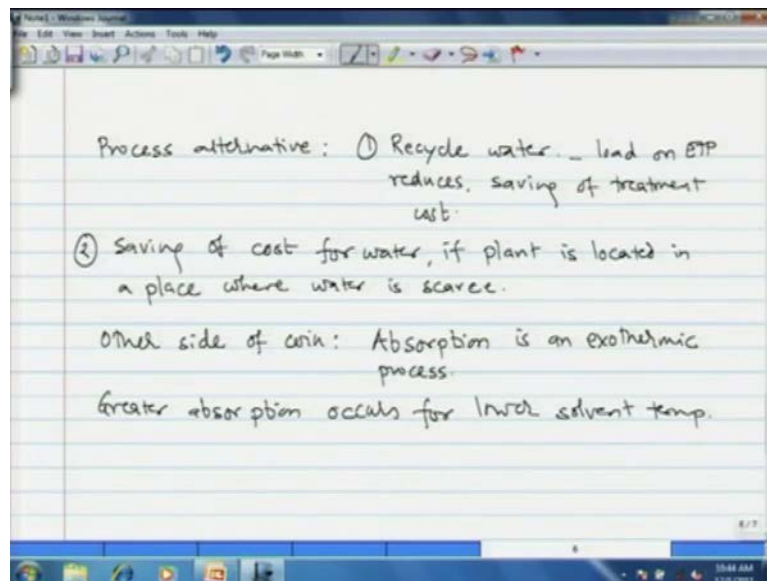 Note1 - Windows Journal
File Edit View Insert Actions Tools Help
Page Width
Process alternative: ① Recycle water. - load on ETP
reduces, saving of treatment
cost.
② Saving of cost for water, if plant is located in
a place where water is scarce.
Other side of coin: Absorption is an exothermic
process.
Greater absorption occurs for lower solvent temp.
6/7
6
10:44 AM